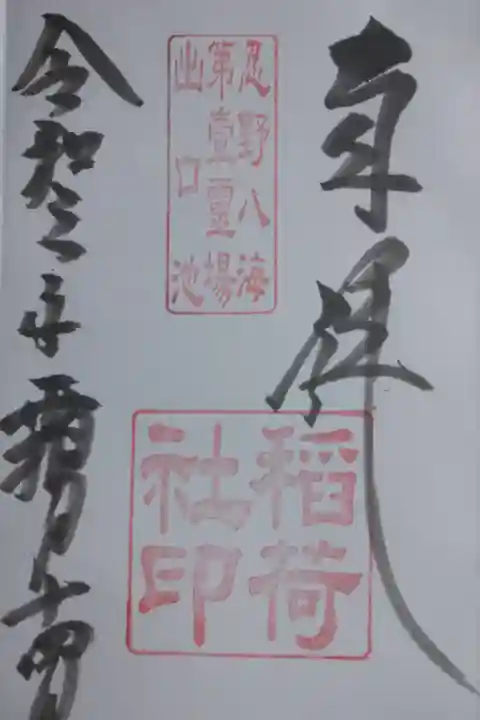 奉拝
忍野八海
第壹霊場
出口池
稲荷
社印
令和三年霜月十四日